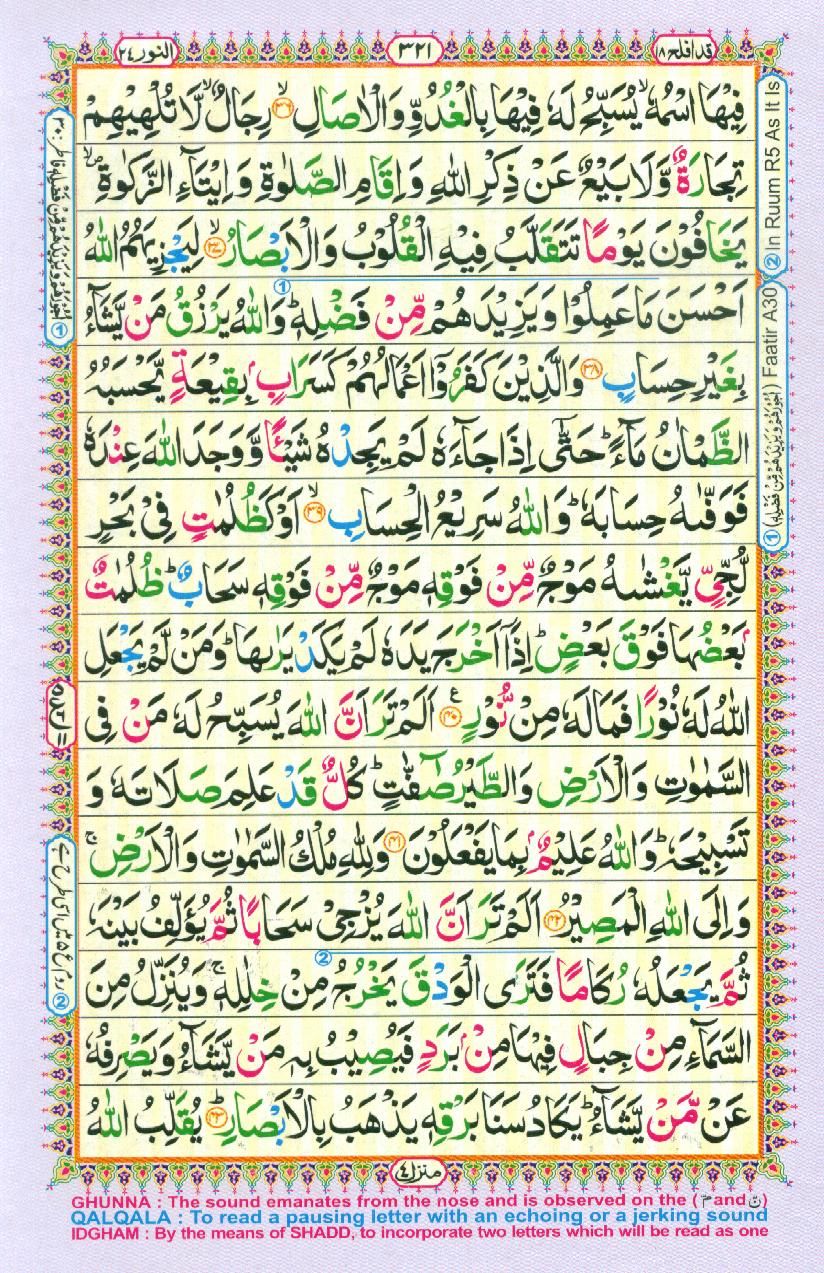 قد افلح ۱۸
۳۲۱
النور ۲۴
فِيْهَا اسْمُهٗ ۙ يُسَبِّحُ لَهٗ فِيْهَا بِالْغُدُوِّ وَالْاٰصَالِ ۙ﴿۳۶﴾ رِجَالٌ ۙ لَّا تُلْهِيْهِمْ
تِجَارَةٌ وَّلَا بَيْعٌ عَنْ ذِكْرِ اللّٰهِ وَاِقَامِ الصَّلٰوةِ وَاِيْتَآءِ الزَّكٰوةِ ۙ
يَخَافُوْنَ يَوْمًا تَتَقَلَّبُ فِيْهِ الْقُلُوْبُ وَالْاَبْصَارُ ۙ﴿۳۷﴾ لِيَجْزِيَهُمُ اللّٰهُ
اَحْسَنَ مَا عَمِلُوْا وَيَزِيْدَهُمْ مِّنْ فَضْلِهٖ ؕ وَاللّٰهُ يَرْزُقُ مَنْ يَّشَآءُ
بِغَيْرِ حِسَابٍ ﴿۳۸﴾ وَالَّذِيْنَ كَفَرُوْۤا اَعْمَالُهُمْ كَسَرَابٍۭ بِقِيْعَةٍ يَّحْسَبُهُ
الظَّمْاٰنُ مَآءً ؕ حَتّٰۤى اِذَا جَآءَهٗ لَمْ يَجِدْهُ شَيْـًٔا وَّوَجَدَ اللّٰهَ عِنْدَهٗ
فَوَفّٰىهُ حِسَابَهٗ ؕ وَاللّٰهُ سَرِيْعُ الْحِسَابِ ۙ﴿۳۹﴾ اَوْ كَظُلُمٰتٍ فِيْ بَحْرٍ
لُّجِّيٍّ يَّغْشٰىهُ مَوْجٌ مِّنْ فَوْقِهٖ مَوْجٌ مِّنْ فَوْقِهٖ سَحَابٌ ؕ ظُلُمٰتٌۢ
بَعْضُهَا فَوْقَ بَعْضٍ ؕ اِذَاۤ اَخْرَجَ يَدَهٗ لَمْ يَكَدْ يَرٰىهَا ؕ وَمَنْ لَّمْ يَجْعَلِ
اللّٰهُ لَهٗ نُوْرًا فَمَا لَهٗ مِنْ نُّوْرٍ ﴿۴۰﴾ ع اَلَمْ تَرَ اَنَّ اللّٰهَ يُسَبِّحُ لَهٗ مَنْ فِي
السَّمٰوٰتِ وَالْاَرْضِ وَالطَّيْرُ صٰٓفّٰتٍ ؕ كُلٌّ قَدْ عَلِمَ صَلَاتَهٗ وَ
تَسْبِيْحَهٗ ؕ وَاللّٰهُ عَلِيْمٌۢ بِمَا يَفْعَلُوْنَ ﴿۴۱﴾ وَلِلّٰهِ مُلْكُ السَّمٰوٰتِ وَالْاَرْضِ ۚ
وَاِلَى اللّٰهِ الْمَصِيْرُ ﴿۴۲﴾ اَلَمْ تَرَ اَنَّ اللّٰهَ يُزْجِيْ سَحَابًا ثُمَّ يُؤَلِّفُ بَيْنَهٗ
ثُمَّ يَجْعَلُهٗ رُكَامًا فَتَرَى الْوَدْقَ يَخْرُجُ مِنْ خِلٰلِهٖ ۚ وَيُنَزِّلُ مِنَ
السَّمَآءِ مِنْ جِبَالٍ فِيْهَا مِنْۢ بَرَدٍ فَيُصِيْبُ بِهٖ مَنْ يَّشَآءُ وَيَصْرِفُهٗ
عَنْ مَّنْ يَّشَآءُ ؕ يَكَادُ سَنَا بَرْقِهٖ يَذْهَبُ بِالْاَبْصَارِ ؕ﴿۴۳﴾ يُقَلِّبُ اللّٰهُ
② In Ruum R5 As It Is
① (اُجُوْرَهُمْ وَيَزِيْدَهُمْ مِّنْ فَضْلِهٖ) Faatir A30
منزل ۴
GHUNNA : The sound emanates from the nose and is observed on the ( م and ن )
QALQALA : To read a pausing letter with an echoing or a jerking sound
IDGHAM : By the means of SHADD, to incorporate two letters which will be read as one